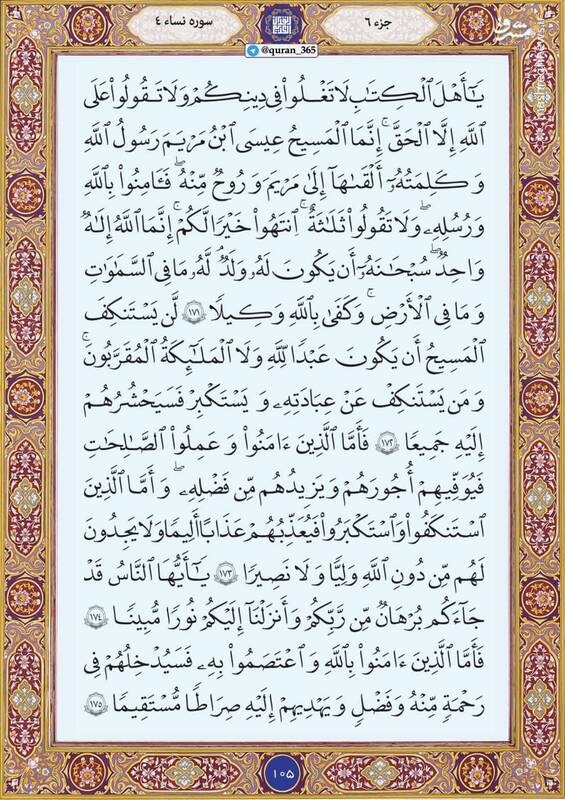 جزء ۶
سوره نساء ۴
@quran_365
يَـٰٓأَهْلَ ٱلْكِتَـٰبِ لَا تَغْلُوا۟ فِى دِينِكُمْ وَلَا تَقُولُوا۟ عَلَى
ٱللَّهِ إِلَّا ٱلْحَقَّ ۚ إِنَّمَا ٱلْمَسِيحُ عِيسَى ٱبْنُ مَرْيَمَ رَسُولُ ٱللَّهِ
وَكَلِمَتُهُۥٓ أَلْقَىٰهَآ إِلَىٰ مَرْيَمَ وَرُوحٌ مِّنْهُ ۖ فَـَٔامِنُوا۟ بِٱللَّهِ
وَرُسُلِهِۦ ۖ وَلَا تَقُولُوا۟ ثَلَـٰثَةٌ ۚ ٱنتَهُوا۟ خَيْرًا لَّكُمْ ۚ إِنَّمَا ٱللَّهُ إِلَـٰهٌ
وَٰحِدٌ ۖ سُبْحَـٰنَهُۥٓ أَن يَكُونَ لَهُۥ وَلَدٌ ۘ لَّهُۥ مَا فِى ٱلسَّمَـٰوَٰتِ
وَمَا فِى ٱلْأَرْضِ ۗ وَكَفَىٰ بِٱللَّهِ وَكِيلًا ۱۷۱ لَّن يَسْتَنكِفَ
ٱلْمَسِيحُ أَن يَكُونَ عَبْدًا لِّلَّهِ وَلَا ٱلْمَلَـٰٓئِكَةُ ٱلْمُقَرَّبُونَ ۚ
وَمَن يَسْتَنكِفْ عَنْ عِبَادَتِهِۦ وَيَسْتَكْبِرْ فَسَيَحْشُرُهُمْ
إِلَيْهِ جَمِيعًا ۱۷۲ فَأَمَّا ٱلَّذِينَ ءَامَنُوا۟ وَعَمِلُوا۟ ٱلصَّـٰلِحَـٰتِ
فَيُوَفِّيهِمْ أُجُورَهُمْ وَيَزِيدُهُم مِّن فَضْلِهِۦ ۖ وَأَمَّا ٱلَّذِينَ
ٱسْتَنكَفُوا۟ وَٱسْتَكْبَرُوا۟ فَيُعَذِّبُهُمْ عَذَابًا أَلِيمًا وَلَا يَجِدُونَ
لَهُم مِّن دُونِ ٱللَّهِ وَلِيًّا وَلَا نَصِيرًا ۱۷۳ يَـٰٓأَيُّهَا ٱلنَّاسُ قَدْ
جَآءَكُم بُرْهَـٰنٌ مِّن رَّبِّكُمْ وَأَنزَلْنَآ إِلَيْكُمْ نُورًا مُّبِينًا ۱۷۴
فَأَمَّا ٱلَّذِينَ ءَامَنُوا۟ بِٱللَّهِ وَٱعْتَصَمُوا۟ بِهِۦ فَسَيُدْخِلُهُمْ فِى
رَحْمَةٍ مِّنْهُ وَفَضْلٍ وَيَهْدِيهِمْ إِلَيْهِ صِرَٰطًا مُّسْتَقِيمًا ۱۷۵
۱۰۵